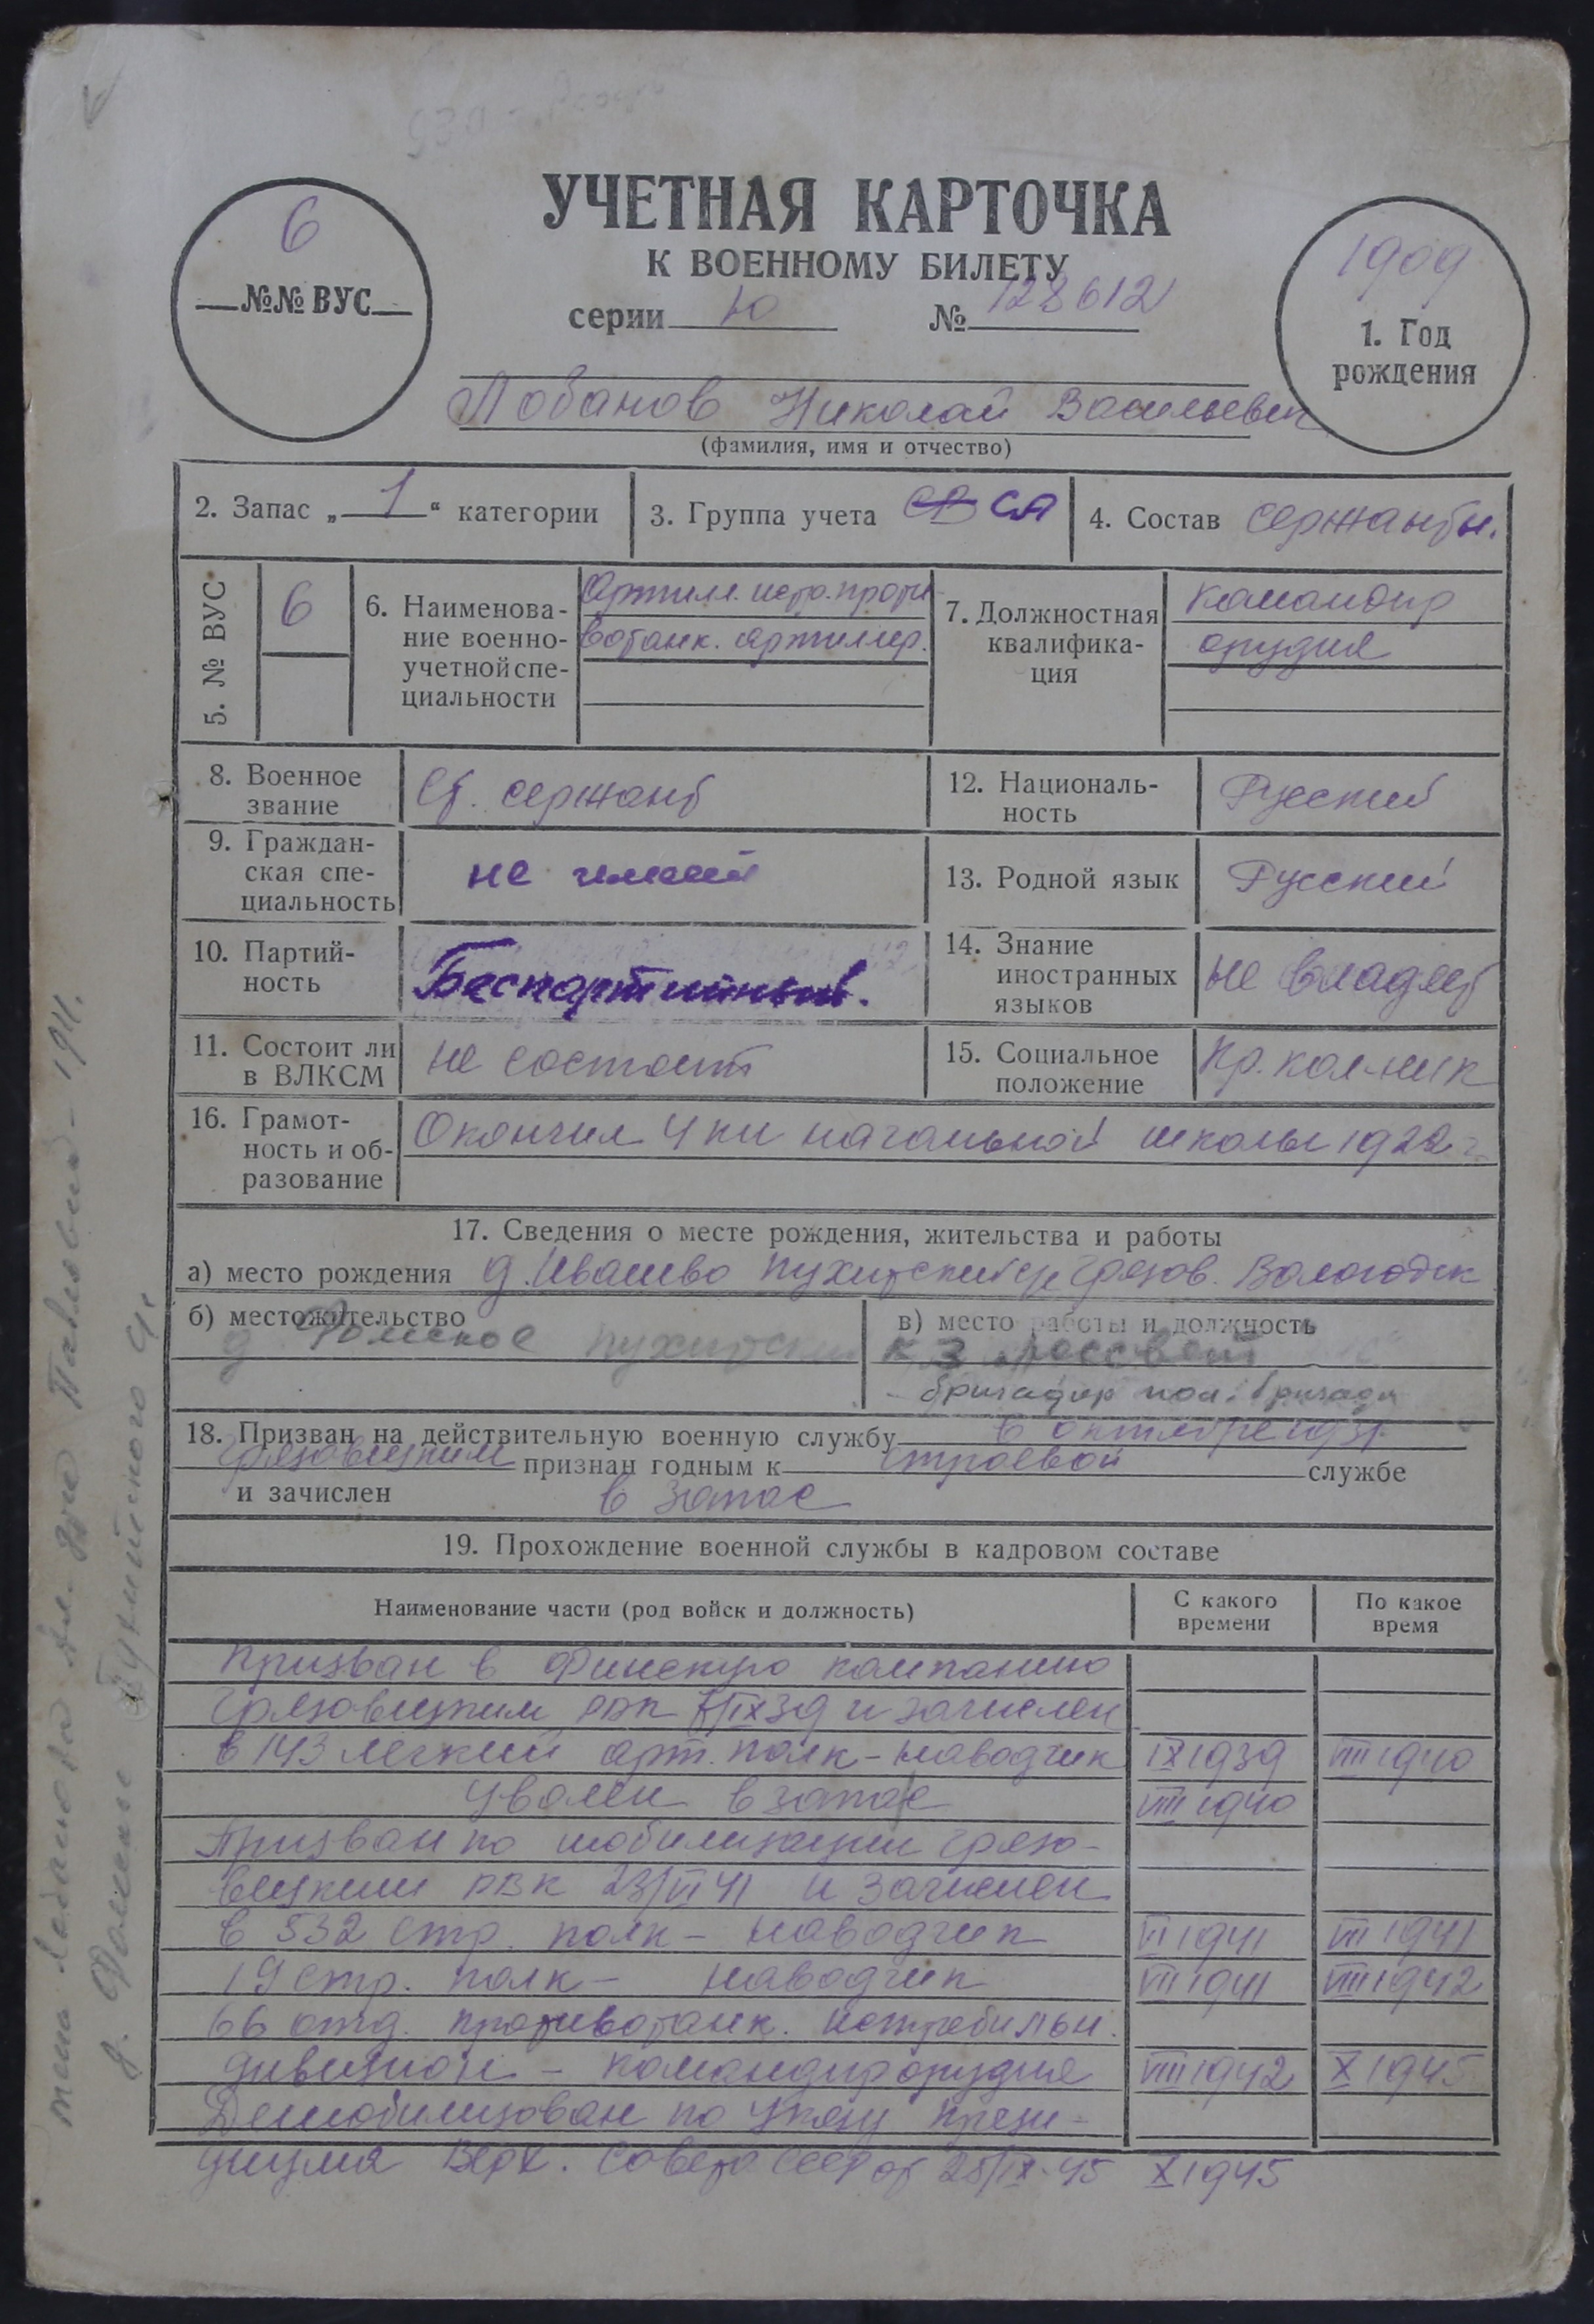 6
№№ ВУС
УЧЕТНАЯ КАРТОЧКА
К ВОЕННОМУ БИЛЕТУ
серии Ю № 128612
1909
1. Год
рождения
Лобанов Николай Васильевич
(фамилия, имя и отчество)
2. Запас „ 1 “ категории
3. Группа учета СА
4. Состав сержанты.
5. № ВУС 6
6. Наименова-
ние военно-
учетной спе-
циальности
Артилл. истр. проти-
вотанк. артиллер.
7. Должностная
квалифика-
ция
командир
орудия
8. Военное
звание
Ст. сержант
12. Националь-
ность
Русский
9. Граждан-
ская спе-
циальность
не имеет
13. Родной язык Русский
10. Партий-
ность
Беспартийный.
14. Знание
иностранных
языков
не владеет
11. Состоит ли
в ВЛКСМ
не состоит
15. Социальное
положение
Кр. кол-ник
16. Грамот-
ность и об-
разование
Окончил 4 кл начальной школы 1922 г.
17. Сведения о месте рождения, жительства и работы
а) место рождения д. Ивашево Пухитский с/с Грязов. Вологодск
б) местожительство
д Фомское Пухитский
в) место работы и должность
к з Рассвет
бригадир пол. бригады
18. Призван на действительную военную службу в октябре 1931
Грязовецким признан годным к строевой службе
и зачислен в запас
19. Прохождение военной службы в кадровом составе
Наименование части (род войск и должность)
С какого
времени
По какое
время
Призван в Финскую компанию
Грязовецким РВК IX 39 и зачислен
в 143 легкий арт. полк - наводчик IX 1939 VIII 1940
Уволен в запас VIII 1940
Призван по мобилизации Грязо-
вецким РВК 23/VI 41 и зачислен
в 532 стр. полк - наводчик VI 1941 VII 1941
19 стр. полк - наводчик VII 1941 VIII 1942
66 отд. противотанк. истребильн.
дивизион - командир орудия VIII 1942 X 1945
Демобилизован по Указу Прези-
диума Верх. Совета СССР от 25/IX-45 X 1945
Павловна - 1911.
д. Фоминское